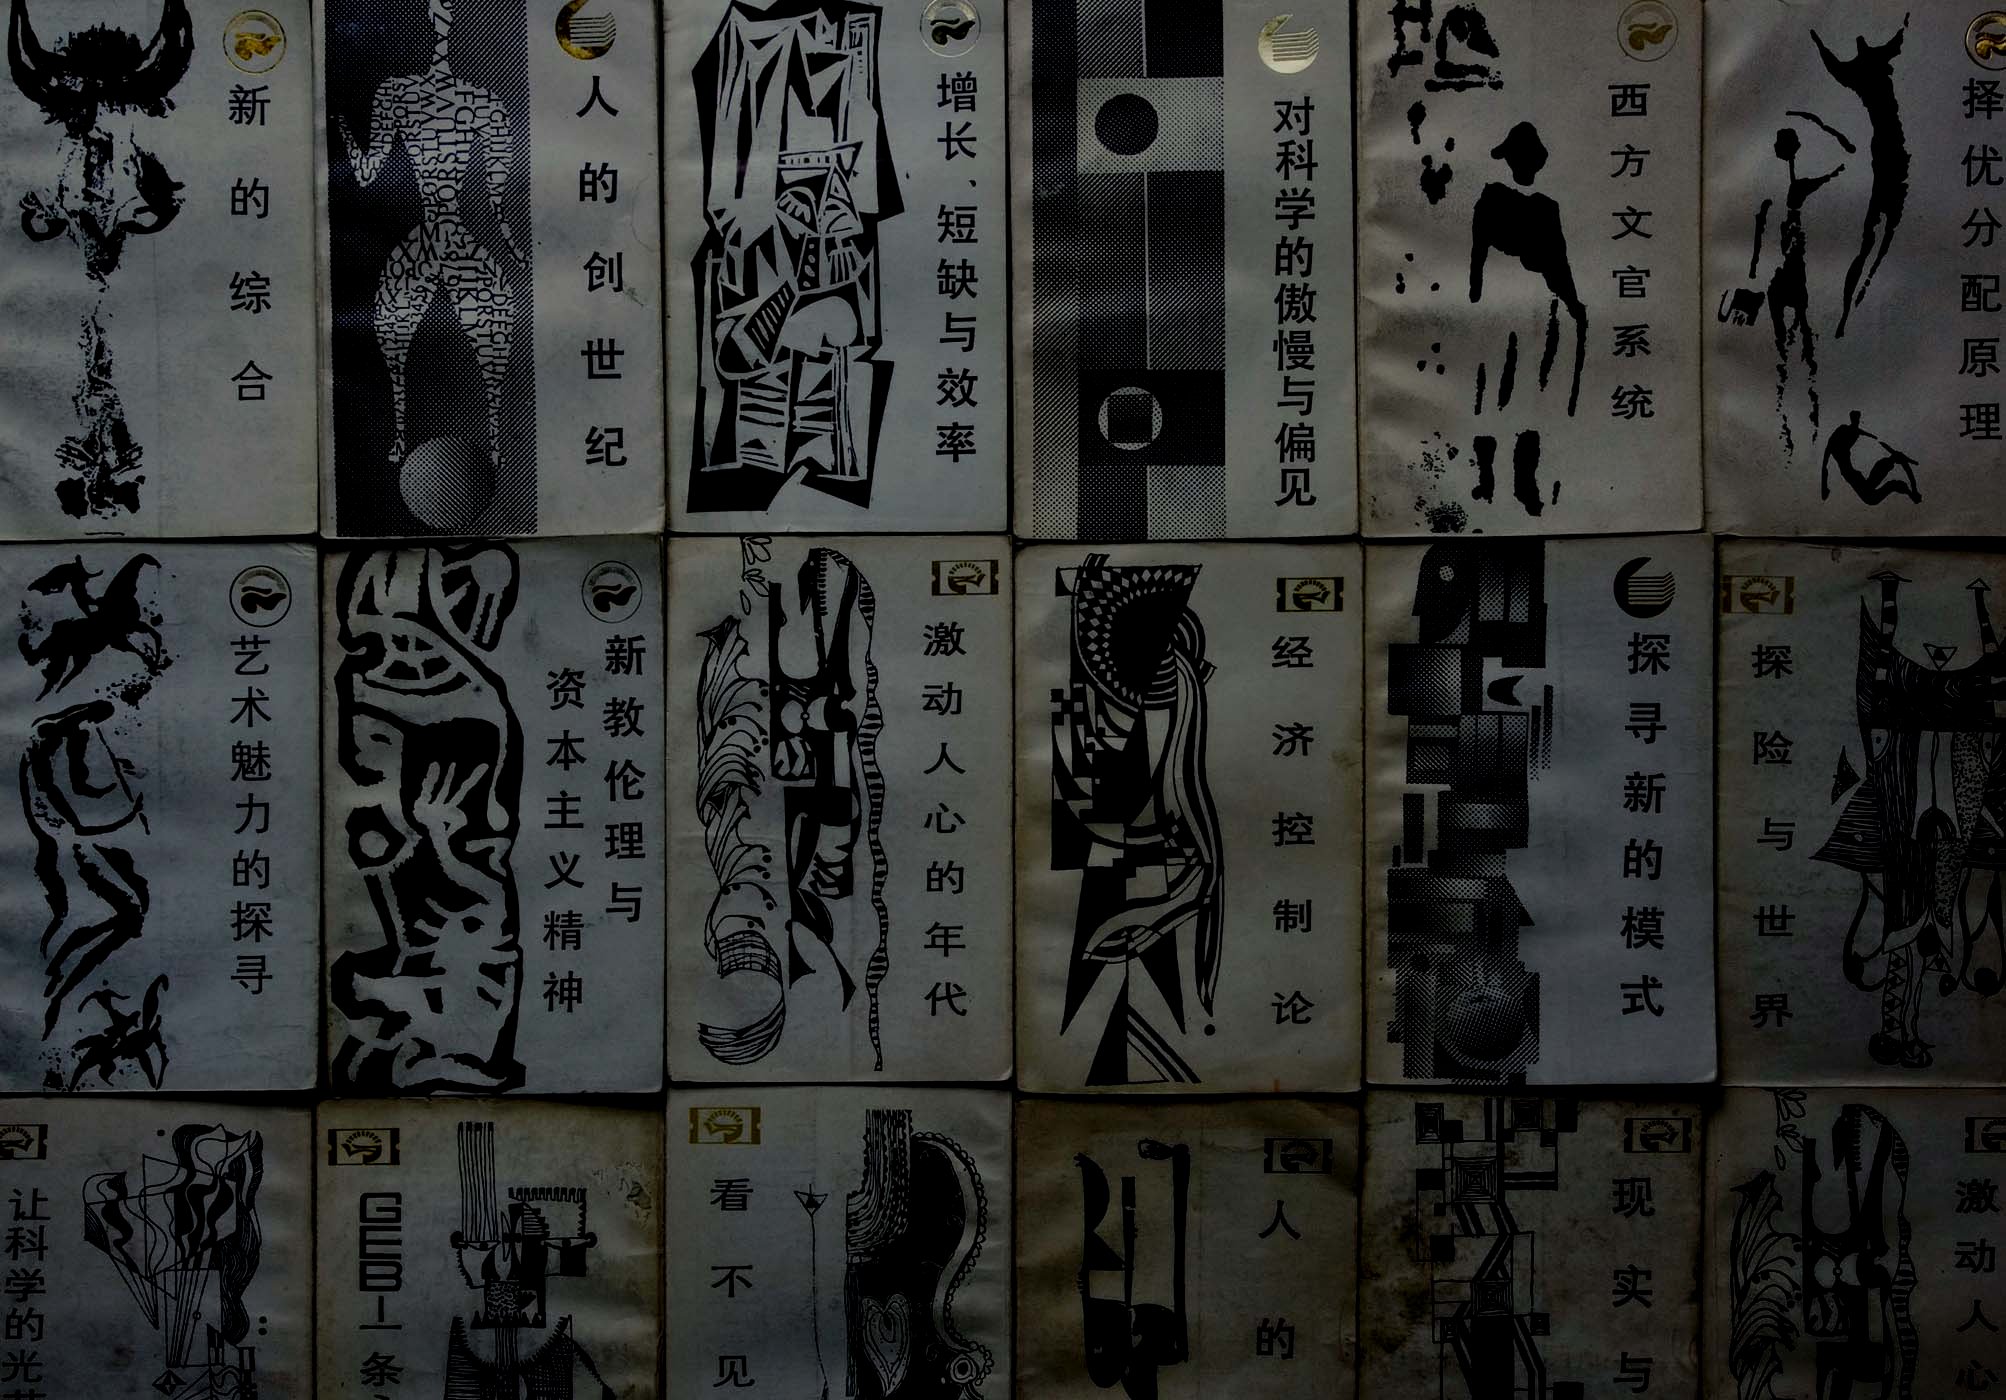 新的综合
人的创世纪
增长、短缺与效率
对科学的傲慢与偏见
西方文官系统
择优分配原理
艺术魅力的探寻
新教伦理与
资本主义精神
激动人心的年代
经济控制论
探寻新的模式
探险与世界
让科学的光
GEB一条
看不见
人的
现实与
激动人心